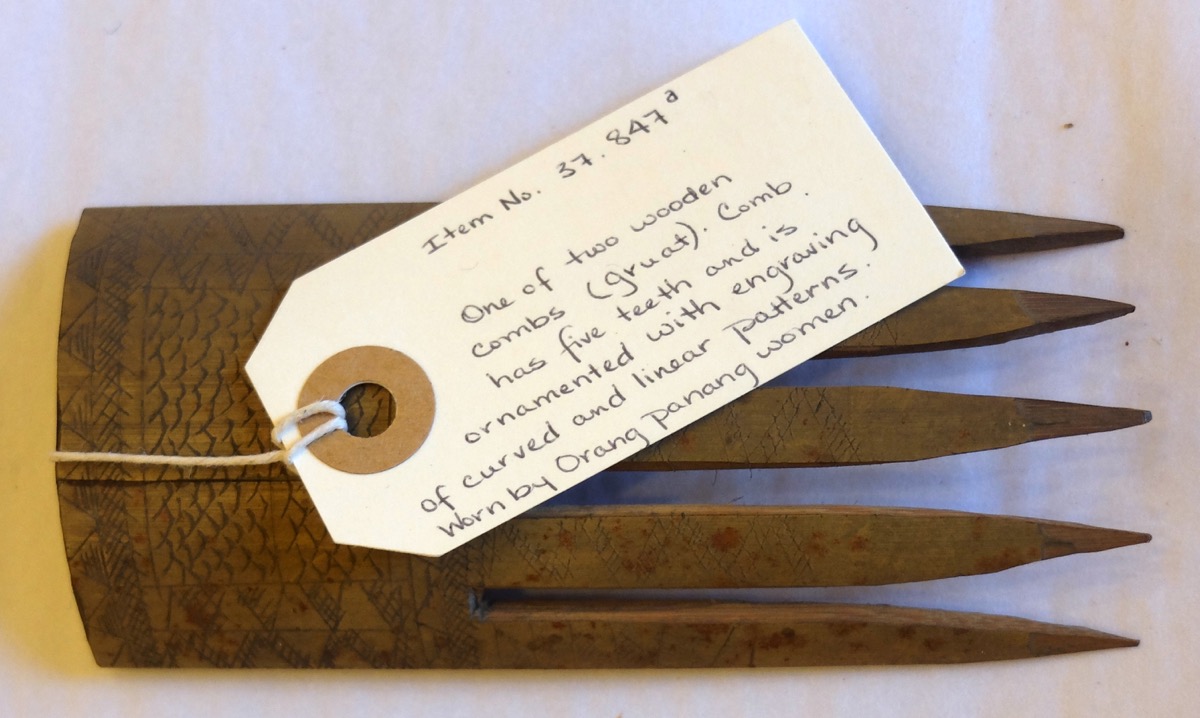 Item No. 37. 847a
One of two wooden
combs (gruat). Comb
has five teeth and is
ornamented with engraving
of curved and linear patterns.
Worn by Orang panang women.